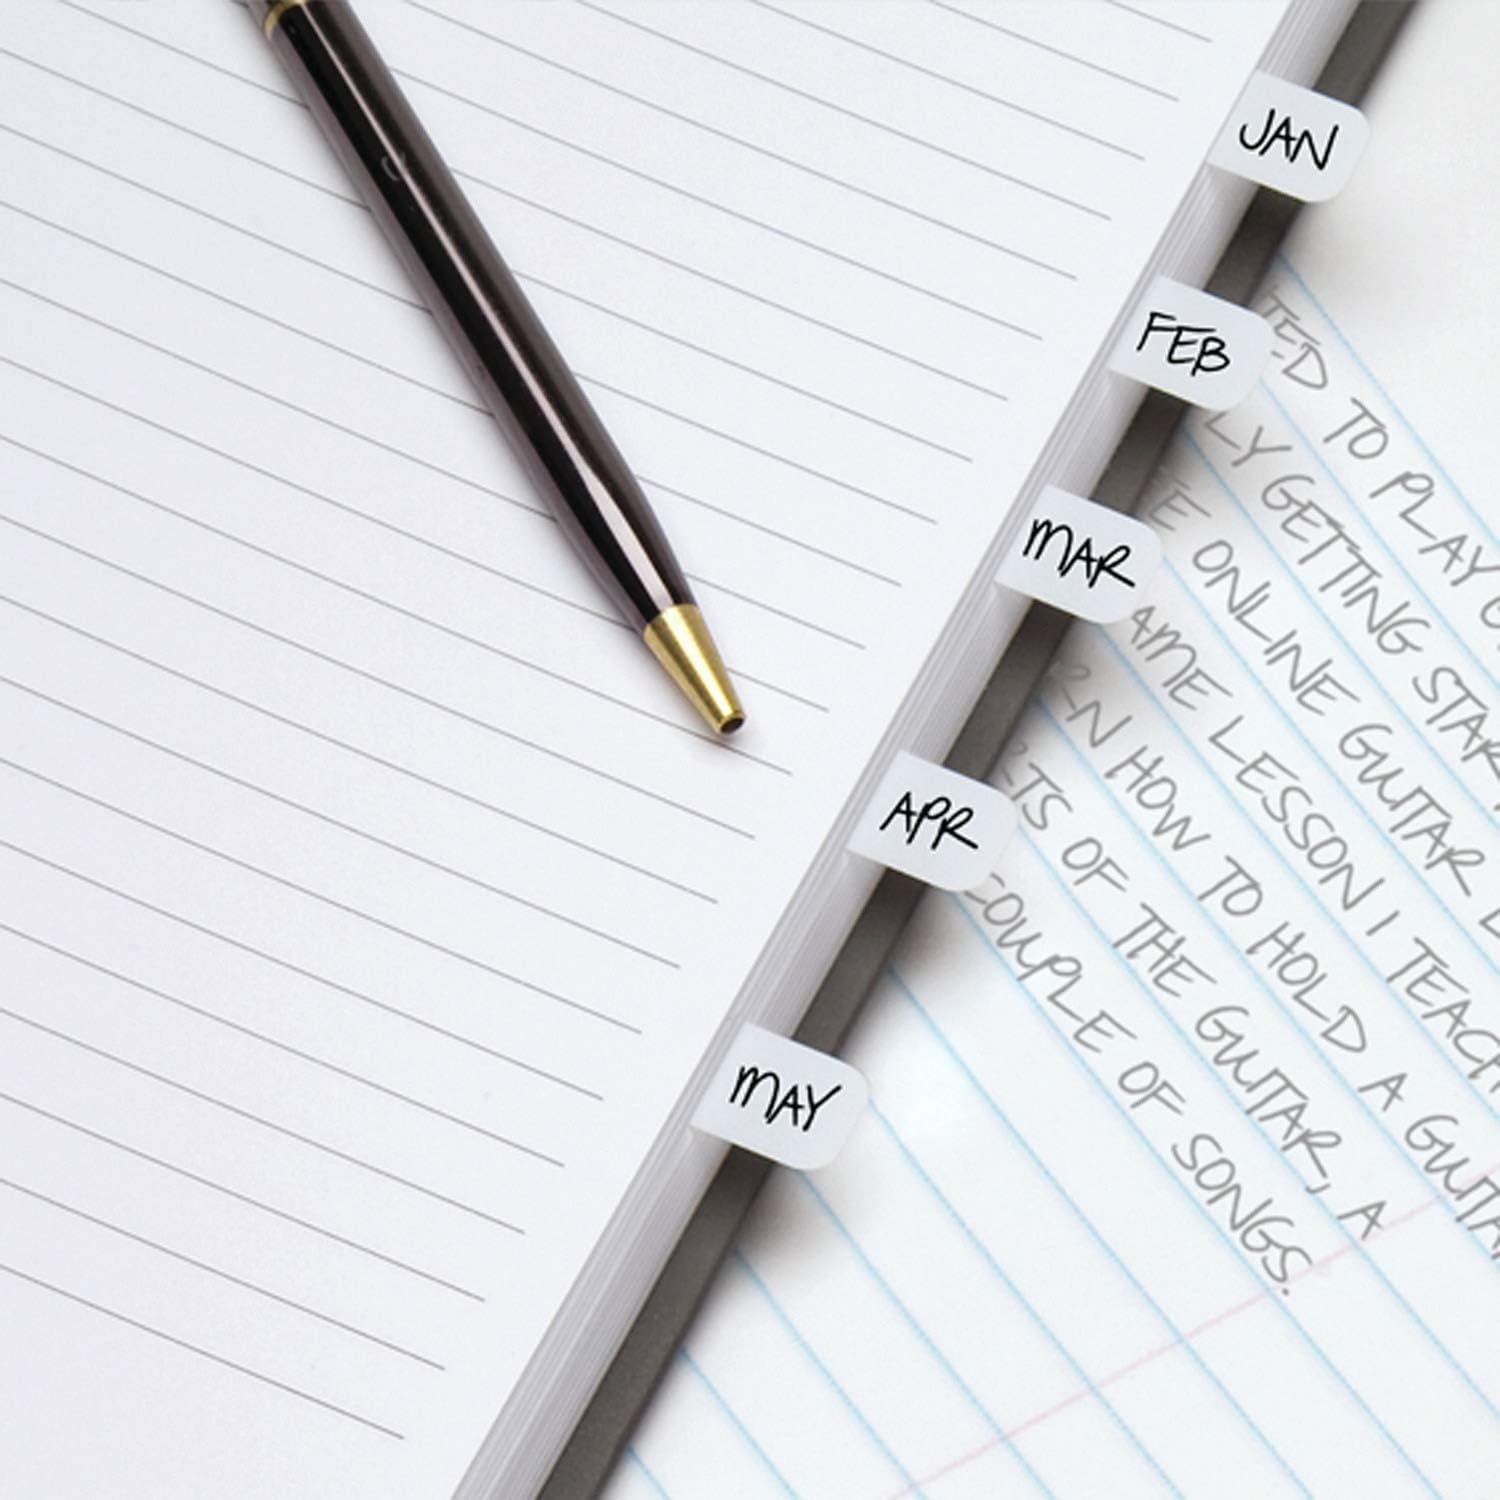 JAN
FEB
MAR
APR
MAY
TO PLAY
GETTING
ONLINE GUITAR
LESSON I TEACH
HOW TO HOLD A GUITAR
OF THE GUITAR, A
COUPLE OF SONGS.